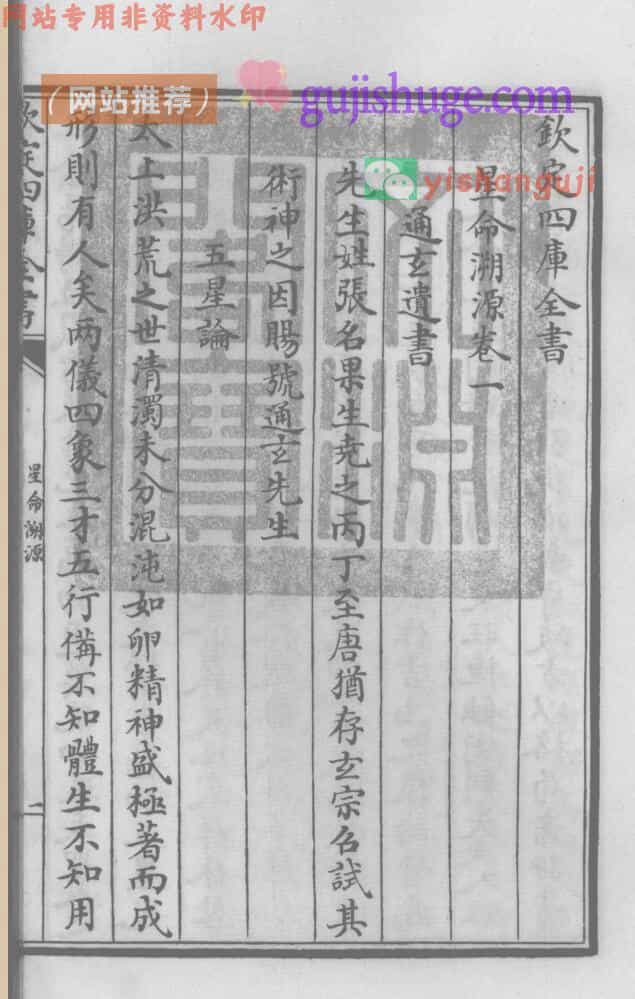 网站专用非资料水印
（网站推荐）
gujishuge.com
yishanguji
欽定四庫全書
星命溯源卷一
通玄遺書
先生姓張名果生尭之丙丁至唐猶存玄宗召試其
術神之因賜號通玄先生
五星論
太上洪荒之世清濁未分混沌如卵精神盛極著而成
形則有人矣两儀四象三才五行備不知體生不知用
欽定四庫全書
星命溯源
一